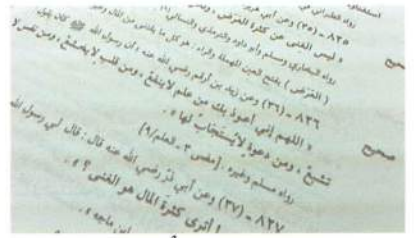 رواه الطبراني في
٨٢٥ - (٣٥) وعن أبي هريرة
صحيح « ليس الغنى عن كثرة العَرَض
رواه البخاري ومسلم وأبو داود والترمذي والنسائي
( العَرَض ) بفتح العين المهملة والراء : هو كل ما يقتنى من المال وغيره
صحيح ٨٢٦ - (٣٦) وعن زيد بن أرقم رضي الله عنه ؛ أن رسول الله ﷺ كان يقول
« اللهم إني أعوذ بك من علم لا ينفعُ ، ومن قلب لا يخشعُ ، ومن نفس لا
تشبعُ ، ومن دعوةٍ لا يُستجابُ لها » .
رواه مسلم وغيره . [مضى ٣ - العلم/٩]
٨٢٧ - (٣٧) وعن أبي ذر رضي الله عنه قال : قال لي رسول الله
! أترى كثرة المال هو الغنى ؟ » .
ابن ماجه